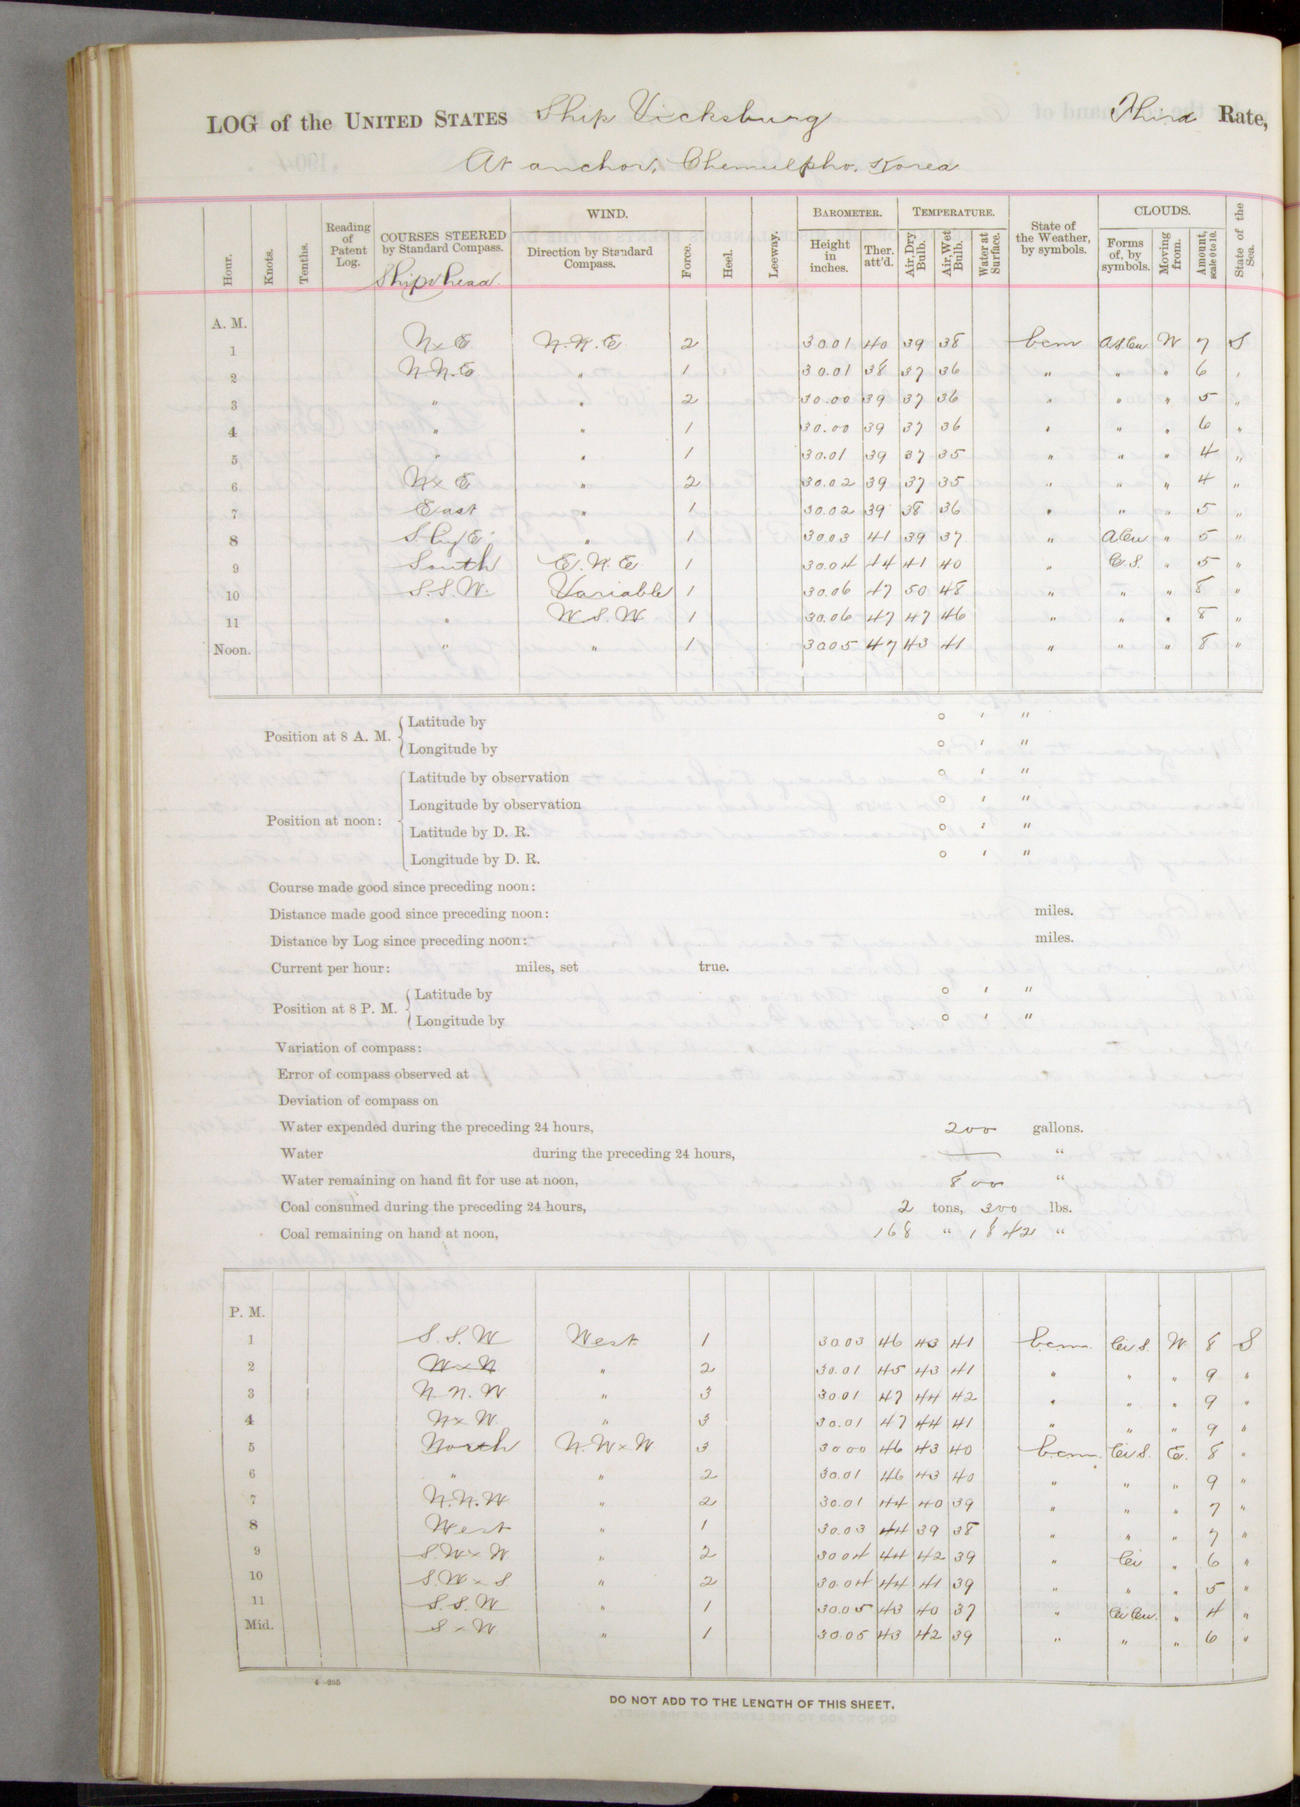 LOG of the UNITED STATES Ship Vicksburg Third Rate,
At anchor, Chemulpho, Korea
Hour. Knots. Tenths. Reading of Patent Log. COURSES STEERED by Standard Compass. Ship's head. WIND. Direction by Standard Compass. Force. Heel. Leeway. BAROMETER. Height in inches. Ther. att'd. TEMPERATURE. Air, Dry Bulb. Air, Wet Bulb. Water at Surface. State of the Weather, by symbols. CLOUDS. Forms of, by symbols. Moving from. Amount, scale 0 to 10. State of the Sea.
A. M.
1 NxE N.N.E 2 30.01 40 39 38 bcm W 7 S
2 N.N.E " 1 30.01 38 37 36 " " " 6 "
3 " " 2 30.00 39 37 36 " " " 5 "
4 " " 1 30.00 39 37 36 " " " 6 "
5 " " 1 30.01 39 37 35 " " " 4 "
6 NxE " 2 30.02 39 37 35 " " " 4 "
7 East " 1 30.02 39 38 36 " " " 5 "
8 S by E " 1 30.03 41 39 37 " A Cu " 5 "
9 South E.N.E 1 30.04 44 41 40 " C.S. " 5 "
10 S.S.W. Variable 1 30.06 47 50 48 " " " 8 "
11 " W.S.W 1 30.06 47 47 46 " " " 8 "
Noon. " " 1 30.05 47 43 41 " " " 8 "
Position at 8 A. M. Latitude by ° ' "
Longitude by ° ' "
Position at noon: Latitude by observation ° ' "
Longitude by observation ° ' "
Latitude by D. R. ° ' "
Longitude by D. R. ° ' "
Course made good since preceding noon:
Distance made good since preceding noon: miles.
Distance by Log since preceding noon: miles.
Current per hour: miles, set true.
Position at 8 P. M. Latitude by ° ' "
Longitude by ° ' "
Variation of compass:
Error of compass observed at
Deviation of compass on
Water expended during the preceding 24 hours, 200 gallons.
Water during the preceding 24 hours, — "
Water remaining on hand fit for use at noon, 800 "
Coal consumed during the preceding 24 hours, 2 tons, 300 lbs.
Coal remaining on hand at noon, 168 " 1842 "
P. M.
1 S.S.W West 1 30.03 46 43 41 bcm. Ci S. W. 8 S
2 WxN " 2 30.01 45 43 41 " " " 9 "
3 N.N.W. " 3 30.01 47 44 42 " " " 9 "
4 NxW. " 3 30.01 47 44 41 " " " 9 "
5 North N.WxW 3 30.00 46 43 40 bcm. Ci S. E. 8 "
6 " " 2 30.01 46 43 40 " " " 9 "
7 N.N.W " 2 30.01 44 40 39 " " " 7 "
8 West " 1 30.03 44 39 38 " " " 7 "
9 S.WxW " 2 30.04 44 42 39 " Ci " 6 "
10 S.WxS " 2 30.04 44 41 39 " " " 5 "
11 S.S.W " 1 30.05 43 40 37 " Ci Cu. " 4 "
Mid. SxW " 1 30.05 43 42 39 " " " 6 "
DO NOT ADD TO THE LENGTH OF THIS SHEET.